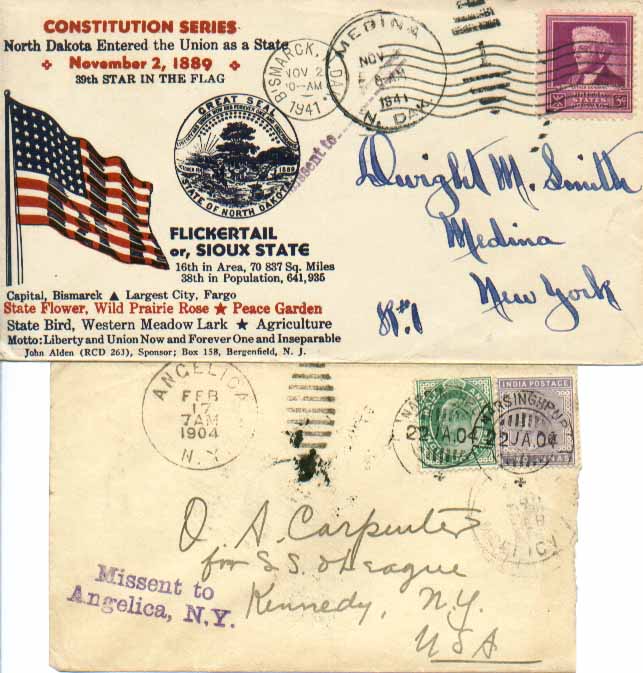 CONSTITUTION SERIES
North Dakota Entered the Union as a State
November 2, 1889
39th STAR IN THE FLAG
BISMARCK, DAK.
NOV 2
10-AM
1941
MEDINA
NOV
8-AM
1941
N. DAK.
Missent to
GREAT SEAL
STATE OF NORTH DAKOTA
1889
FLICKERTAIL
or, SIOUX STATE
16th in Area, 70 837 Sq. Miles
38th in Population, 641,935
Capital, Bismarck ▲ Largest City, Fargo
State Flower, Wild Prairie Rose ★ Peace Garden
State Bird, Western Meadow Lark ★ Agriculture
Motto: Liberty and Union Now and Forever One and Inseparable
John Alden (RCD 263), Sponsor; Box 158, Bergenfield, N. J.
Dwight M. Smith
Medina
New York
R#1
ANGELICA
FEB
17
7AM
1904
N.Y.
INDIA POSTAGE
22 JA.04
22 JA.04
O. A. Carpenter
for S.S. o League
Kennedy, N.Y.
USA
Missent to
Angelica, N.Y.